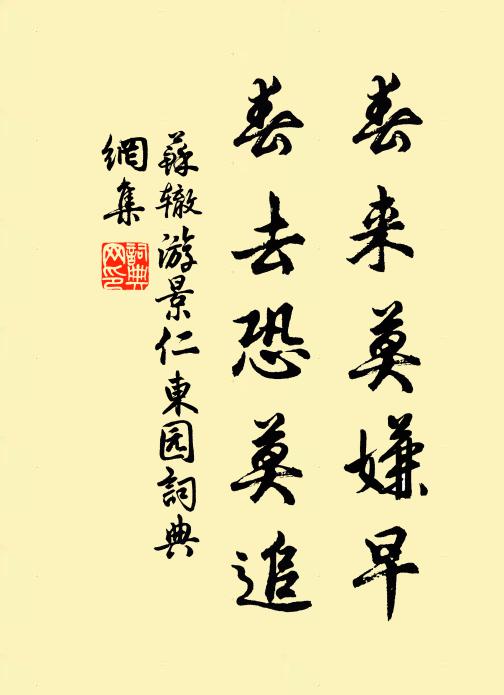 春来莫嫌早
春去恐莫追
蘇辙游景仁東园詞典
網集
詞典
网印